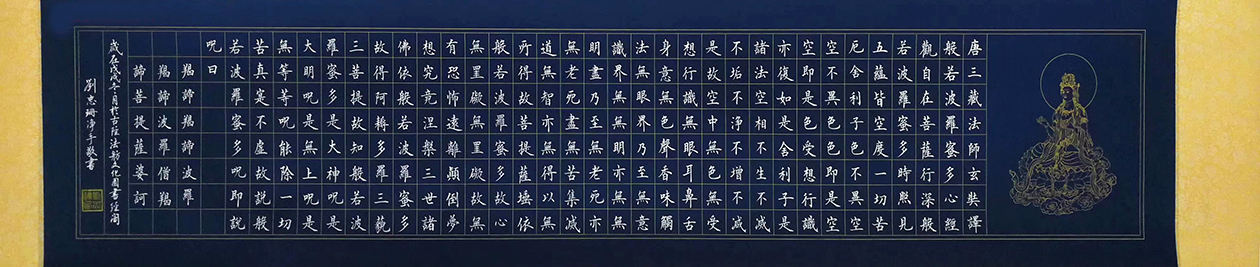 唐三藏法師玄奘譯
般若波羅蜜多心經
觀自在菩薩行深般
若波羅蜜多時照見
五蘊皆空度一切苦
厄舍利子色不異空
空不異色色即是空
空即是色受想行識
亦復如是舍利子是
諸法空相不生不滅
不垢不淨不增不減
是故空中無色無受
想行識無眼耳鼻舌
身意無色聲香味觸
法無眼界乃至無意
識界無無明亦無無
明盡乃至無老死亦
無老死盡無苦集滅
道無智亦無得以無
所得故菩提薩埵依
般若波羅蜜多故心
無罣礙無罣礙故無
有恐怖遠離顛倒夢
想究竟涅槃三世諸
佛依般若波羅蜜多
故得阿耨多羅三藐
三菩提故知般若波
羅蜜多是大神呪是
大明呪是無上呪是
無等等呪能除一切
苦真實不虛故說般
若波羅蜜多呪即說
呪曰
羯諦羯諦波羅
羯諦波羅僧羯
諦菩提薩婆訶
歲在戊戌年月於古法文化園書經閣
劉忠淨手敬書